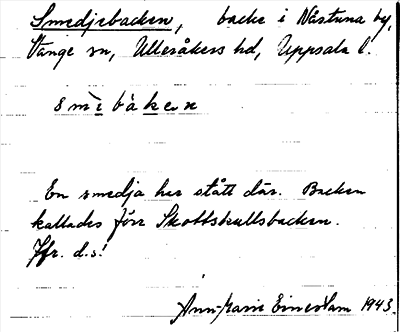 Smedjebacken, backe i Nåstuna by,
Vänge sn, Ulleråkers hd, Uppsala l.
smìbàken
En smedja har stått där. Backen
kallades förr Skottskullsbacken.
Jfr. d.s!
Ann-Marie 1943.